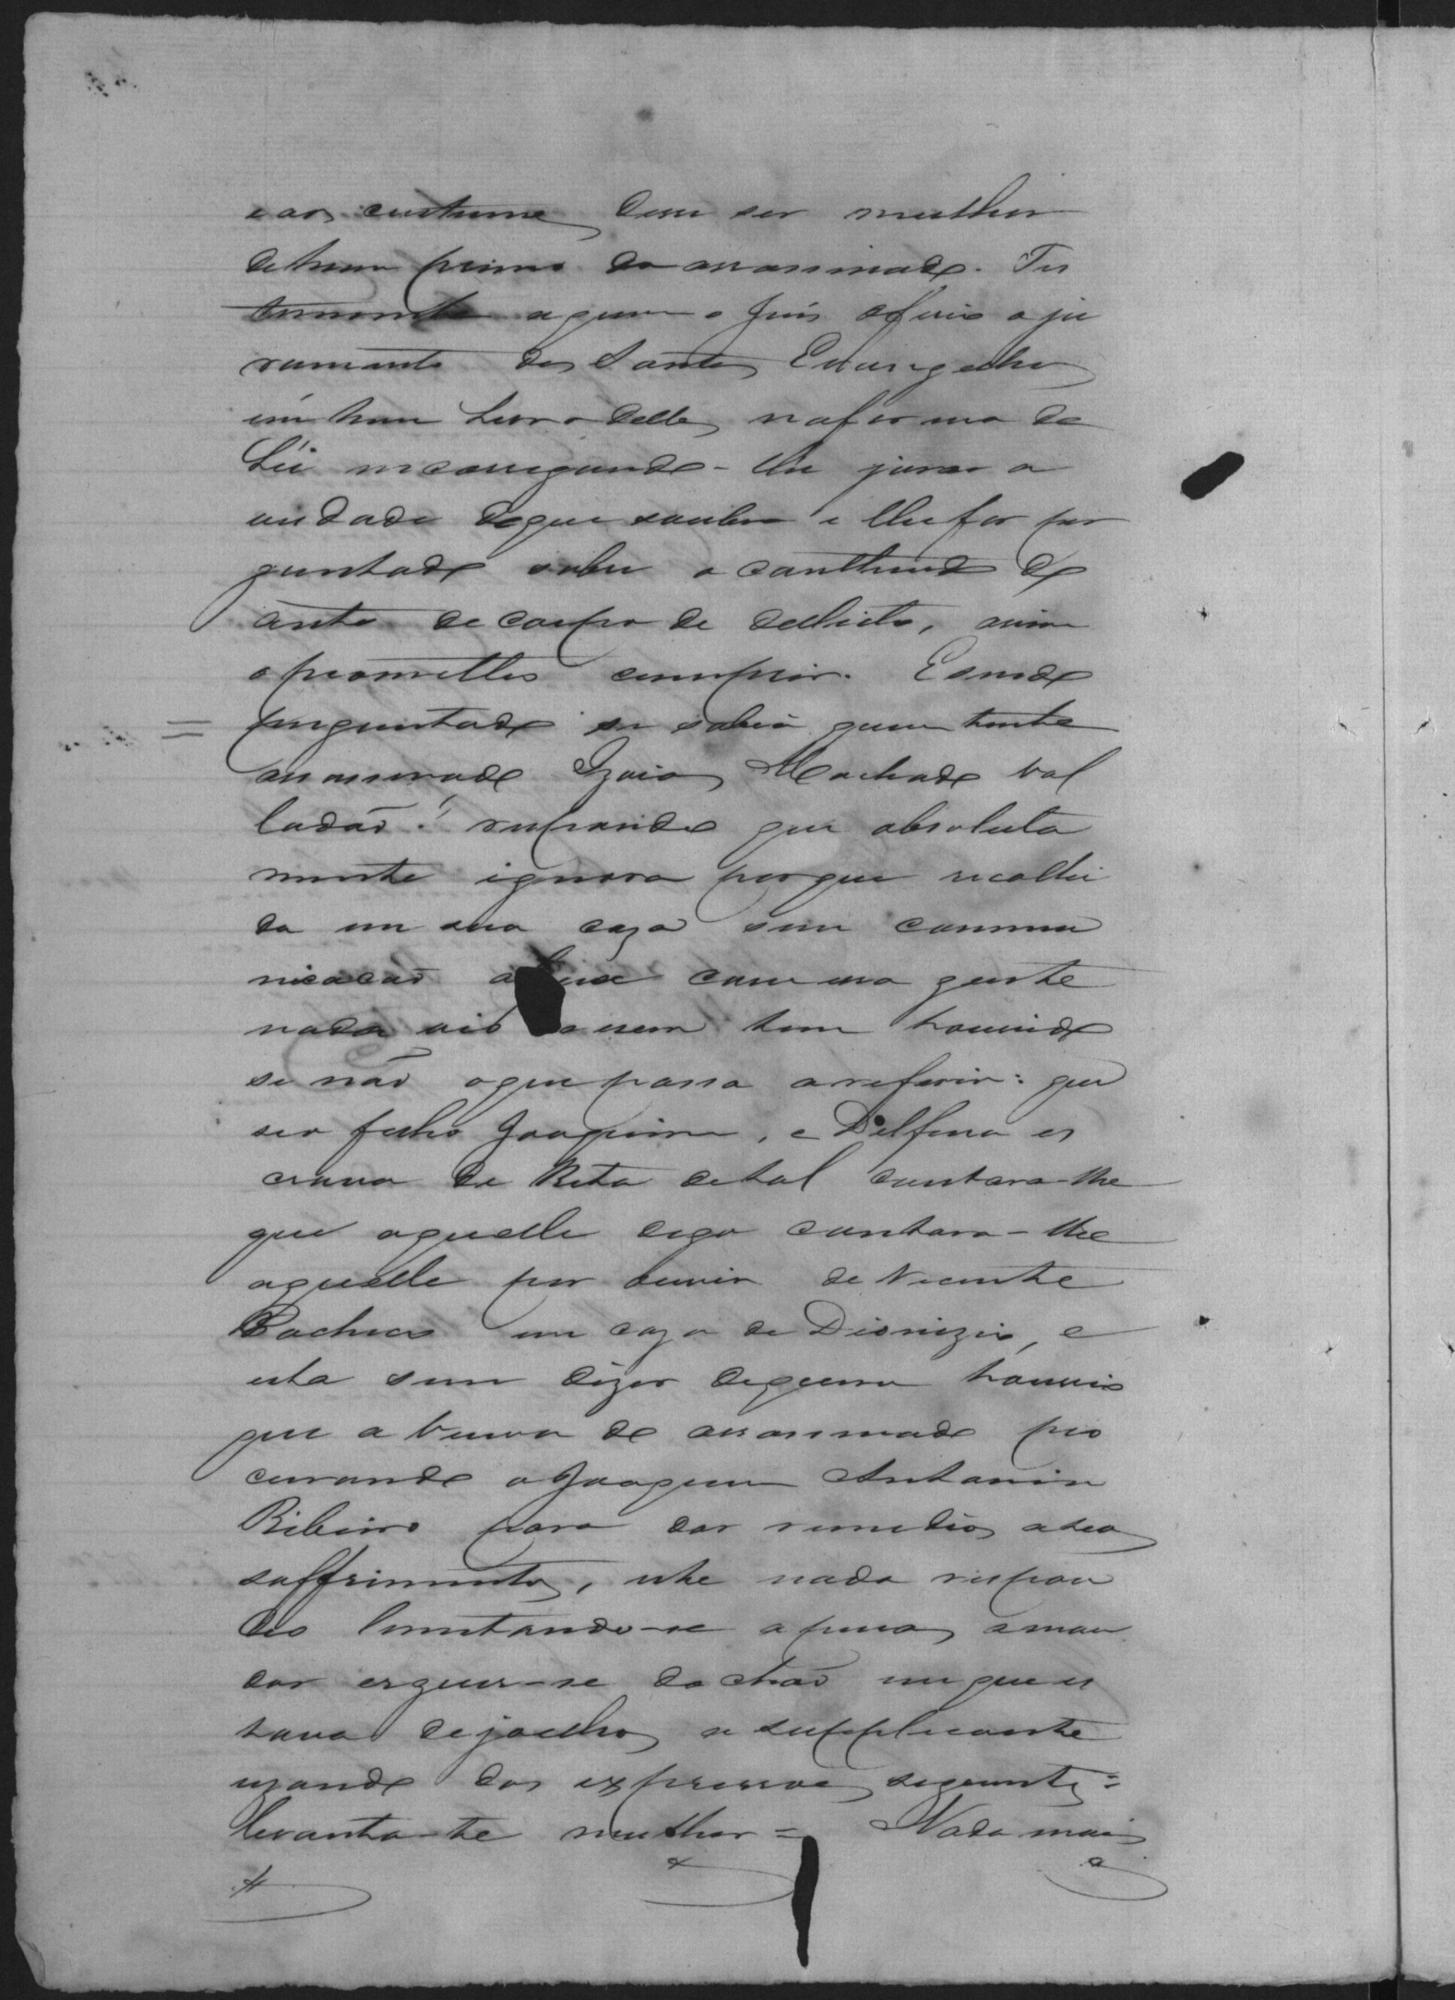 e aos custume disse ser mulher
de hum primo do assassinado. Tes
temunha a quem o Juis defirio o ju
ramento dos Santos Evangelhos
em hum Livro delles na forma da
Lei incarregando-lhe jurar a
verdade do que soubesse e lhe for per
guntado sobre o contheudo do
auto de corpo de delicto, assim
o prometteo cumprir. E sendo
perguntado se sabia quem tenha
assassinado Izaias Machado Val
ladão? respondeo que absoluta
mente ignora porque recolhi
da em sua caza sem commu
nicacão com essa gente
nada vio nem tem houvido
se não o que passa a referir: que
seo filho Joaquim, e Delfina es
crava de Rita de tal contara-lhe
que aquelle digo contara-lhe
aquelle por ouvir de Vicente
Pacheco em caza de Dionizio, e
esta sem dizer de quem houvio
que a viuva do assassinado pro
curando a Joaquim Antonio
Ribeiro para dar remedios a seos
soffrimentos, este nada respon
deo limitando-se apenas a man
dar erguer-se do chão em que es
tava de joelhos a supplicante
uzando das expressoes seguintes =
levanta-te mulher = Nada mais